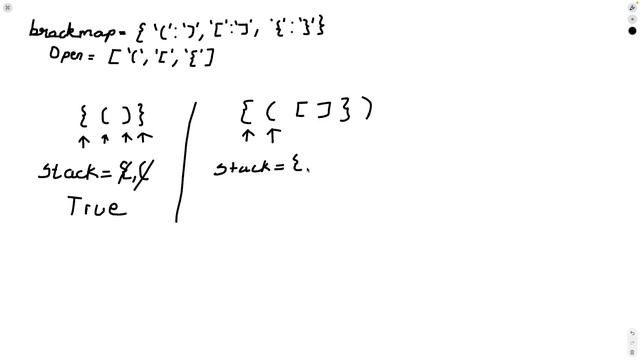 brackmap = { '(' : ')', '[' : ']', '{' : '}' }
Open = [ '(', '[', '{' ]
{ ( ) }
stack = {, (
True
{ ( [ ] } )
stack = {,